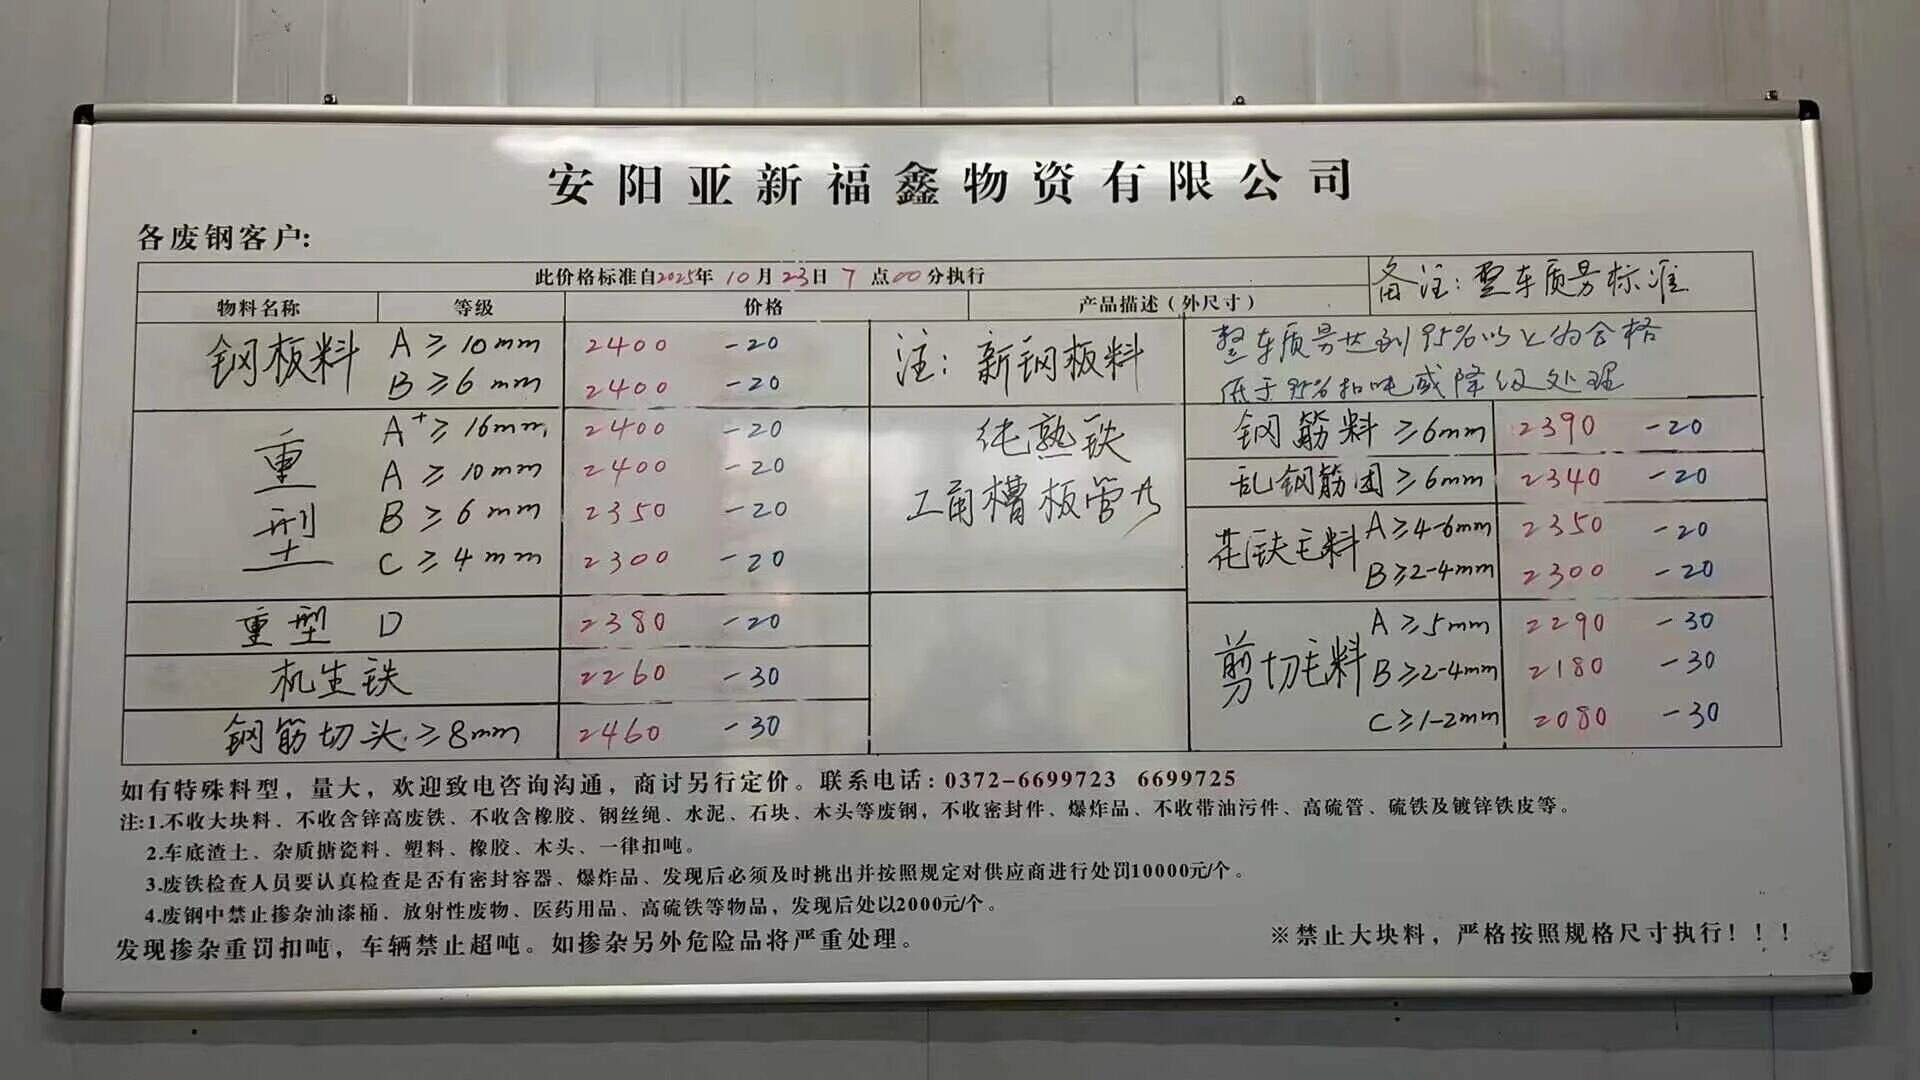 安阳亚新福鑫物资有限公司
各废钢客户:
此价格标准自2025年10月23日7点00分执行
备注:整车质量标准
物料名称 等级 价格 产品描述(外尺寸)
钢板料 A≥10mm 2400 -20
B≥6mm 2400 -20
注:新钢板料
整车质量达到95%以上为合格
低于95%扣吨或降级处理
重型 A+≥16mm 2400 -20
A≥10mm 2400 -20
B≥6mm 2350 -20
C≥4mm 2300 -20
纯熟铁
工角槽板管
重型 D 2380 -20
机生铁 2260 -30
钢筋切头≥8mm 2460 -30
钢筋料≥6mm 2390 -20
乱钢筋团≥6mm 2340 -20
花铁毛料 A≥4-6mm 2350 -20
B≥2-4mm 2300 -20
剪切毛料 A≥5mm 2290 -30
B≥2-4mm 2180 -30
C≥1-2mm 2080 -30
如有特殊料型,量大,欢迎致电咨询沟通,商讨另行定价。联系电话:0372-6699723 6699725
注:1.不收大块料、不收含锌高废铁、不收含橡胶、钢丝绳、水泥、石块、木头等废钢,不收密封件、爆炸品、不收带油污件、高硫管、硫铁及镀锌铁皮等。
2.车底渣土、杂质搪瓷料、塑料、橡胶、木头、一律扣吨。
3.废铁检查人员要认真检查是否有密封容器、爆炸品、发现后必须及时挑出并按照规定对供应商进行处罚10000元/个。
4.废钢中禁止掺杂油漆桶、放射性废物、医药用品、高硫铁等物品,发现后处以2000元/个。
发现掺杂重罚扣吨,车辆禁止超吨。如掺杂另外危险品将严重处理。
※禁止大块料,严格按照规格尺寸执行!!!